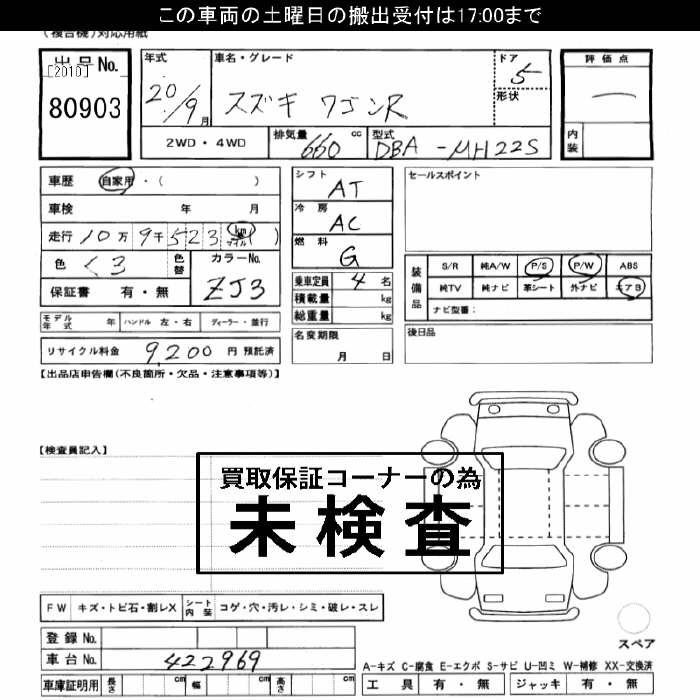 この車両の土曜日の搬出受付は17:00まで
(複合機)対応用紙
出品No.
[2010]
80903
年式
20/9月
車名・グレード
スズキ ワゴンR
ドア
5
形状
評価点
内装
2WD・4WD
排気量 660 cc
型式 DBA-MH22S
車歴 自家用・( )
車検 年 月
走行 10万9千523 km マイル ( )
色 くろ
色替
カラーNo.
ZJ3
保証書 有・無
モデル年式 年 ハンドル 左・右 ディーラー・並行
リサイクル料金 9,200円 預託済
シフト AT
冷房 AC
燃料 G
乗車定員 4名
積載量 kg
総重量 kg
名変期限
月 日
セールスポイント
装備品
S/R 純A/W P/S P/W ABS
純TV 純ナビ 革シート 外ナビ エアB
ナビ型番:
後日品
【出品店申告欄(不良箇所・欠品・注意事項等)】
【検査員記入】
買取保証コーナーの為
未検査
FW キズ・トビ石・割レX シート内装 コゲ・穴・汚レ・シミ・破レ・スレ
登録No.
車台No. 422969
車庫証明用 長さ cm 幅 cm 高さ cm
スペア
A-キズ C-腐食 E-エクボ S-サビ U-凹ミ W-補修 XX-交換済
工具 有・無 ジャッキ 有・無